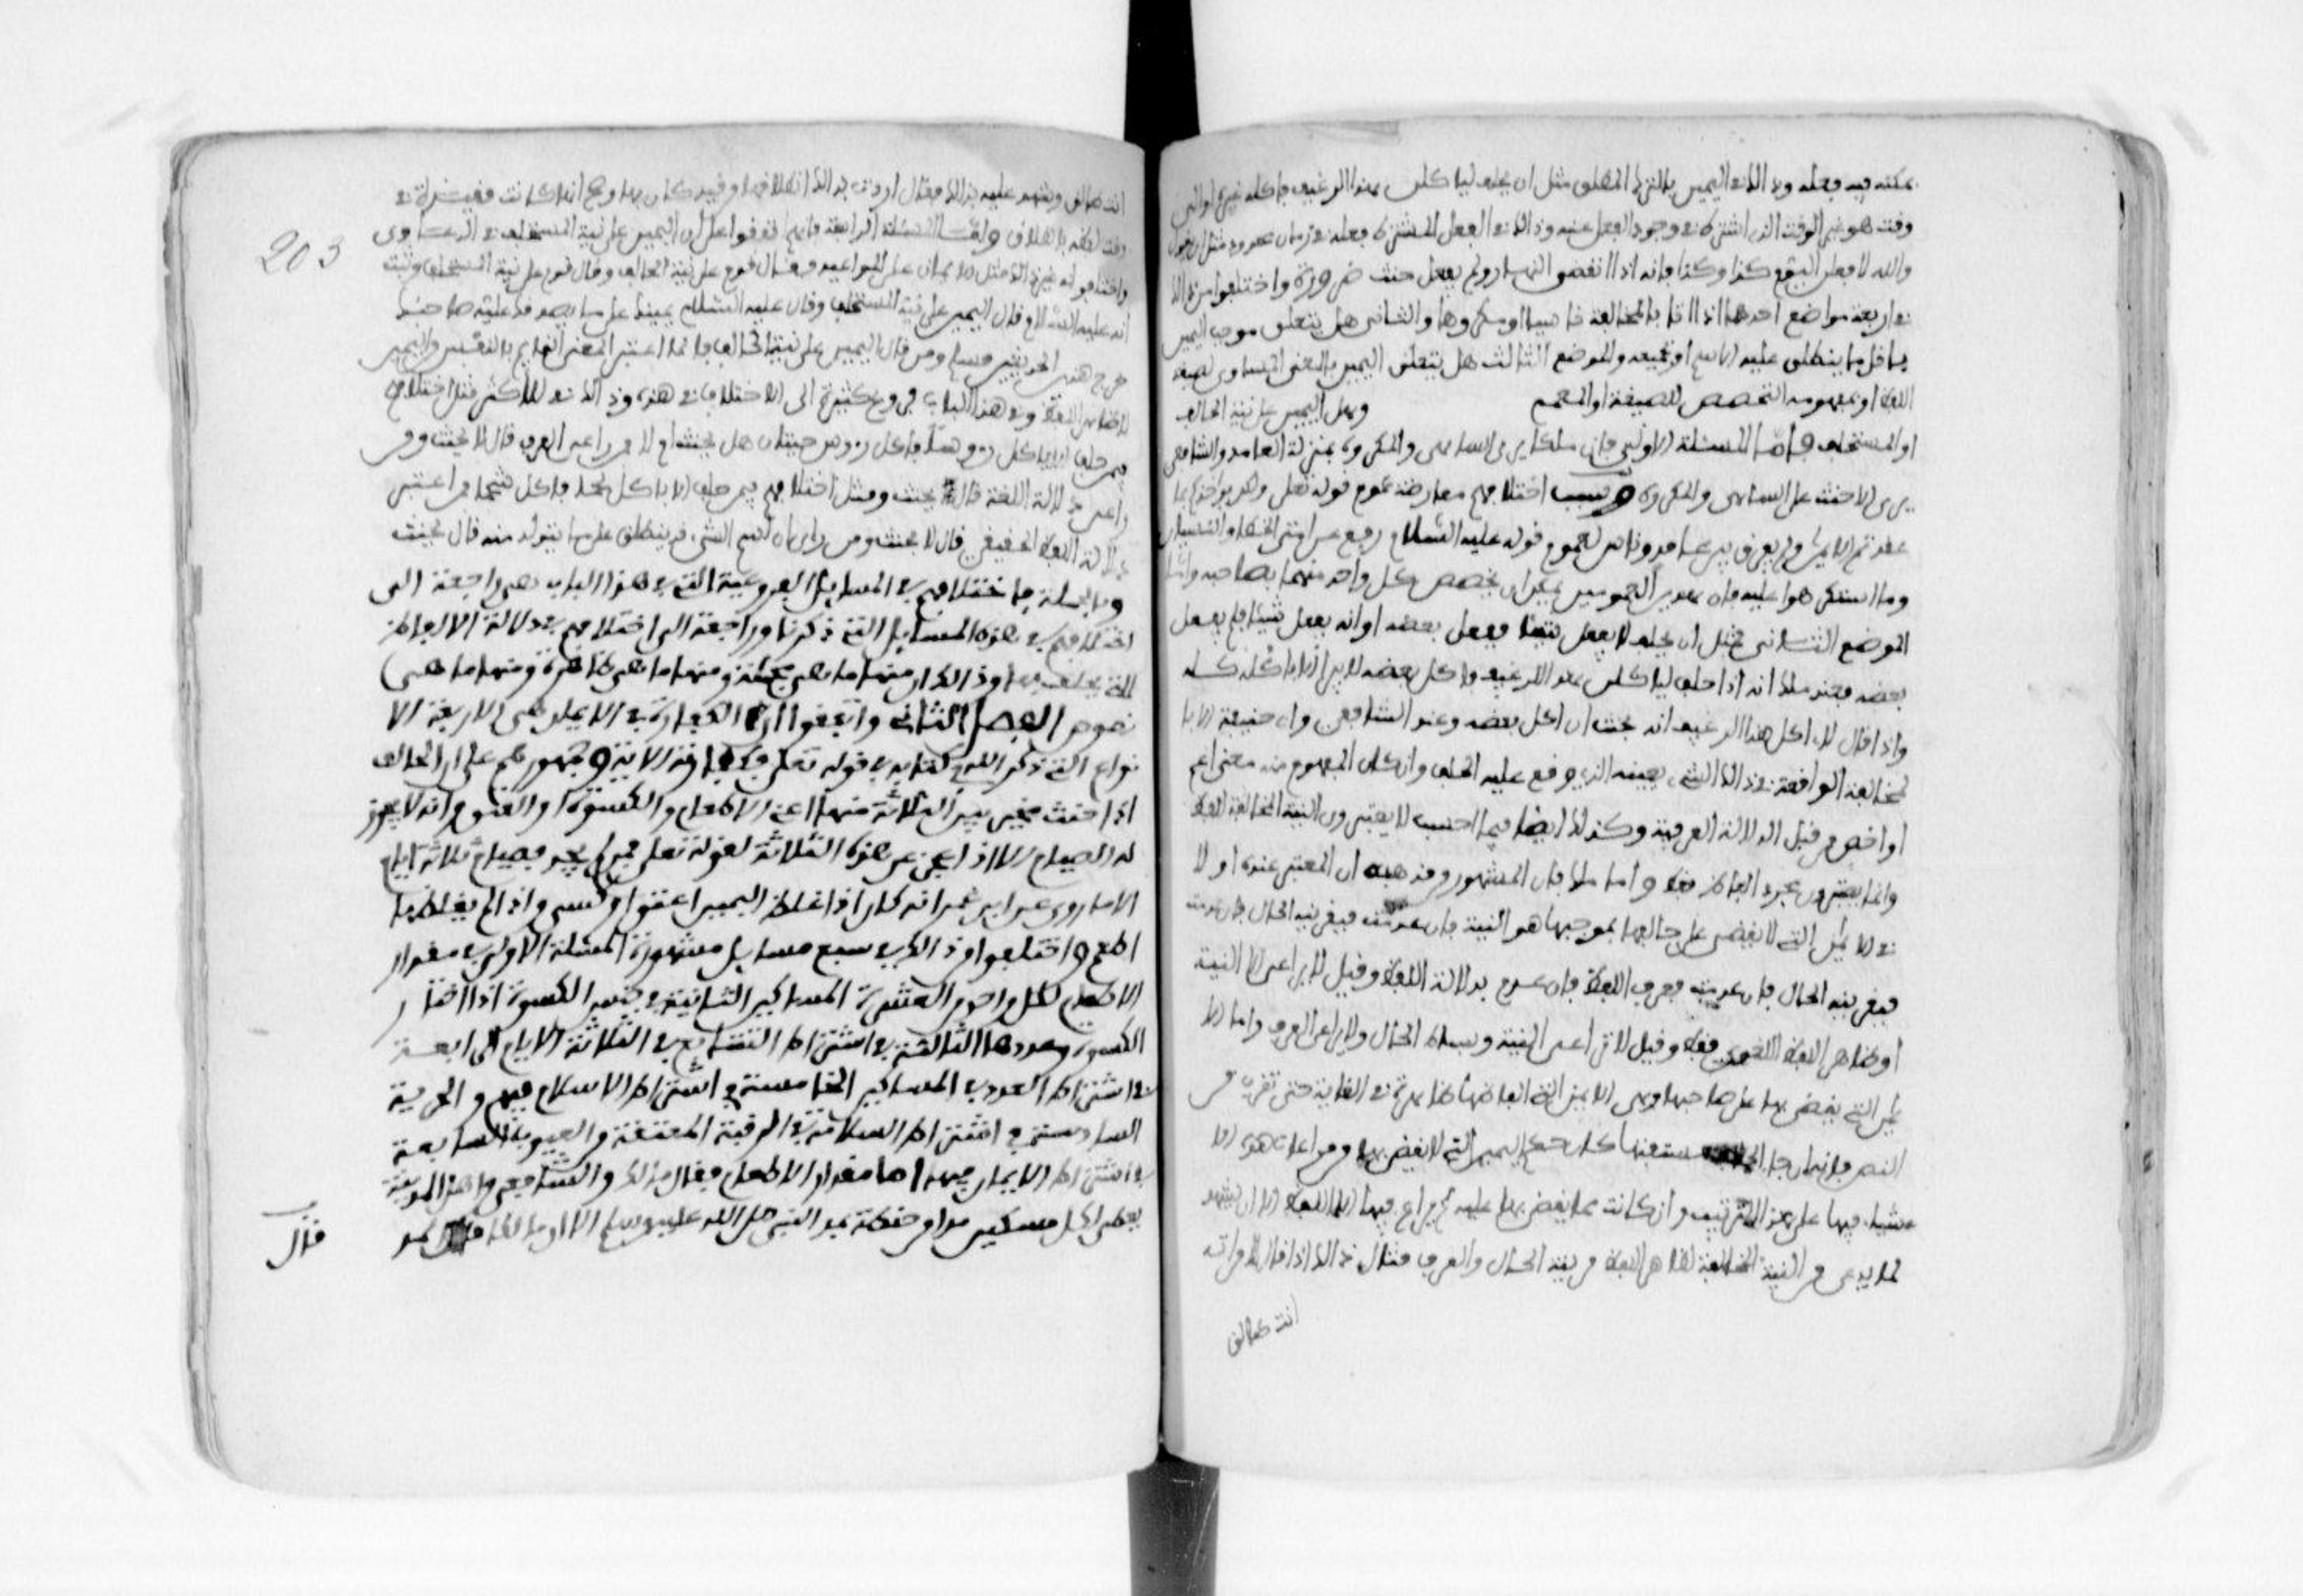 يمكنه فيه فعله وذلك في اليمين بالترك المطلق مثل أن يحلف ليأكلن هذا الرغيف فأكله غيره أو إلى
وقت هو غير الوقت الذي اشترط في وجود الفعل عنه وذلك في الفعل المشترط فعله في زمان محدود مثل أن يقول
والله لأفعلن اليوم كذا وكذا فإنه إذا انقضى النهار ولم يفعل حنث ضرورة واختلفوا من ذلك
في أربعة مواضع أحدها إذا أتا بالمخالفة ناسيا أو مكروها والثاني هل يتعلق موجب اليمين
بأقل ما ينطلق عليه الاسم أو بجميعه والموضع الثالث هل يتعلق اليمين بالمعنى المساوي لصيغة
اللفظ أو بمفهومه المخصص للصيغة أو المعمم وهل اليمين على نية الحالف
أو المستحلف فأما المسئلة الأولى فإن ملكا يرى الساهي والمكروه بمنزلة العامد والشافعي
يرى ألا حنث على الساهي والمكروه وسبب اختلافهم معارضة عموم قوله تعلى ولكن يؤاخذكم بما
عقدتم الأيمن ولم يفرق بين عامد وناس لعموم قوله عليه السلام رفع عن أمتي الخطأ والنسيان
وما استكرهوا عليه فإن هذين العمومين يمكن أن يخصص كل واحد منهما بصاحبه وأما
الموضع الثاني فمثل أن يحلف لا يفعل شيئا ففعل بعضه أو أنه يفعل شيئا فلم يفعل
بعضه فعند ملك أنه إذا حلف ليأكلن هذا الرغيف فأكل بعضه لا يبرأ إلا بأكله كله
وإذا قال لا آكل هذا الرغيف أنه يحنث إن أكل بعضه وعند الشافعي وأبي حنيفة
لمخالفة الواقعة في ذلك الشيء بعينه الذي وقع عليه الحلف وإن كان المفهوم منه معنى أعم
أو أخص من قبل الدلالة العرفية وكذلك أيضا فيما أحسب لا يعتبرون النية المخالفة للفظ
وإنما يعتبرون مجرد الفاظ فقط وأما ملك فإن المشهور من مذهبه أن المعتبر عنده أولا
في الأيمن التي لا يقضى على حالفها بموجبها هو النية فإن عدمت فبقرينة الحال فإن عدمت
فبقرينة الحال فإن عدمت فبعرف اللفظ فإن عدم بدلالة اللفظ وقيل لا يراعى إلا النية
أو ظاهر اللفظ اللغوي فقط وقيل لا تراعى النية وبساط الحال ولا يراعى العرف وأما الا
يمن التي يقضى بها على صاحبها وهي
النص فإنه إن جاء مستفتيا كان حكم اليمين التي لا يقضى بها من مراعات هذه الا
شياء فيها على هذا الترتيب وإن كانت مما يقضى بها عليه لم يراع فيها إلا اللفظ إلا أن يشهد
لما يدعي من النية المخالفة لظاهر اللفظ قرينة الحال والعرف مثال ذلك إذا قال لامراته
انت طالق
203
انت طالق وشهد عليه بذلك فقال أردت بذلك انطلاقها من قيد كان بها
وأما المسئلة الرابعة فإنهم اتفقوا على أن اليمين على نية المستحلف في الدعاوى
واختلفوا في غير ذلك مثل الأيمان على المواعيد فقال قوم على نية الحالف وقال قوم على نية المستحلف وثبت
أنه عليه السلام قال اليمين على نية المستحلف وقال عليه السلام يمينك على ما يصدقك عليه صاحبك
خرج هذين الحديثين مسلم ومن قال اليمين على نية الحالف فإنما اعتبر المعنى القائم بالنفس من اليمين
لا ظاهر اللفظ وفي هذا الباب فروع كثيرة
فيمن حلف ألا يأكل رءوسا فأكل رءوس حيتان هل يحنث أم لا فمن راعى العرف قال لا يحنث ومن
راعى دلالة اللغة قال يحنث ومثل اختلافهم فيمن حلف ألا يأكل لحما فأكل شحما فمن اعتبر
دلالة اللفظ الحقيقي قال لا يحنث ومن رأى أن اسم الشيء قد ينطلق على ما يتولد منه قال يحنث
وبالجملة فاختلافهم في المسايل الفروعية التي في هذا الباب هي راجعة الى
اختلافهم في هذه المسايل التي ذكرنا وراجعة الى اختلافهم في دلالة الالفاظ
التي يحلف بها وذلك ان منها ما هي مجملة ومنها ما هي ظاهرة ومنها ما هي
نصوص الفصل الثاني واتفقوا ان الكفارة في الايمان هي الاربعة الا
نواع التي ذكر الله في كتابه في قوله تعلى فكفارته الاية وجمهورهم على ان الحالف
اذا حنث مخير بين الثلاثة منها اعني الاطعام والكسوة او العتق وانه لا يجوز
له الصيام الا اذا عجز عن هذه الثلاثة لقوله تعلى فمن لم يجد فصيام ثلاثة ايام
الا ما روي عن ابن عمر انه كان اذا غلظ اليمين اعتق او كسى واذا لم يغلظها
اطعم واختلفوا من ذلك في سبع مسايل مشهورة المسئلة الاولى في مقدار
الاطعام لكل واحد من العشرة المساكين الثانية في جنس الكسوة اذا اختار
الكسوة وعددها الثالثة في اشتراط التتابع في الثلاثة الايام الرابعة
في اشتراط العدد في المساكين الخامسة في اشتراط الاسلام فيهم والحرية
السادسة في اشتراط السلامة في الرقبة المعتقة من العيوب السابعة
في اشتراط الايمان فيها اما مقدار الاطعام فقال ملك والشافعي واهل المدينة
يعطى لكل مسكين مد من حنطة بمد النبي صلى الله عليه وسلم الا ان ملكا
قال